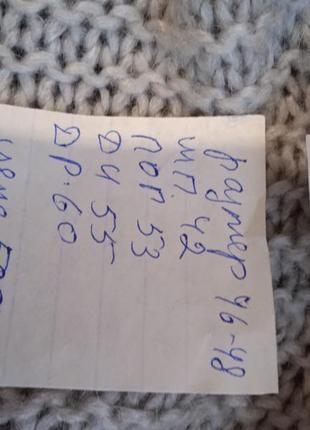 размер 46-48
шп. 42
пог. 53
ди 55
др. 60
цена